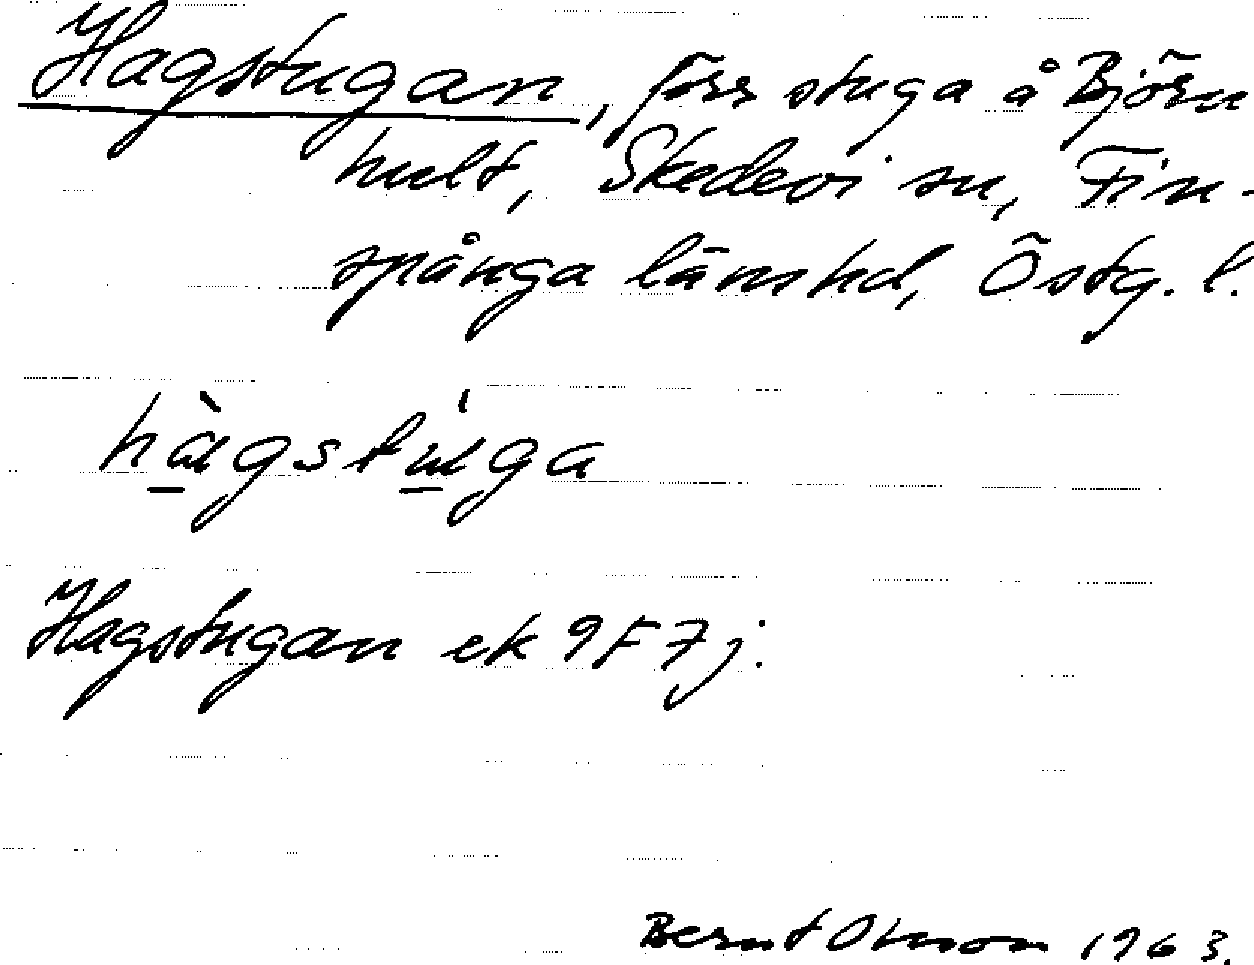 Hagstugan, förr stuga å Björn
hult, Skedevi sn, Fin-
spånga länshd, Östg. l.
hàgstúga
Hagstugan ek 9F7j.
Bernt Olsson 1963.